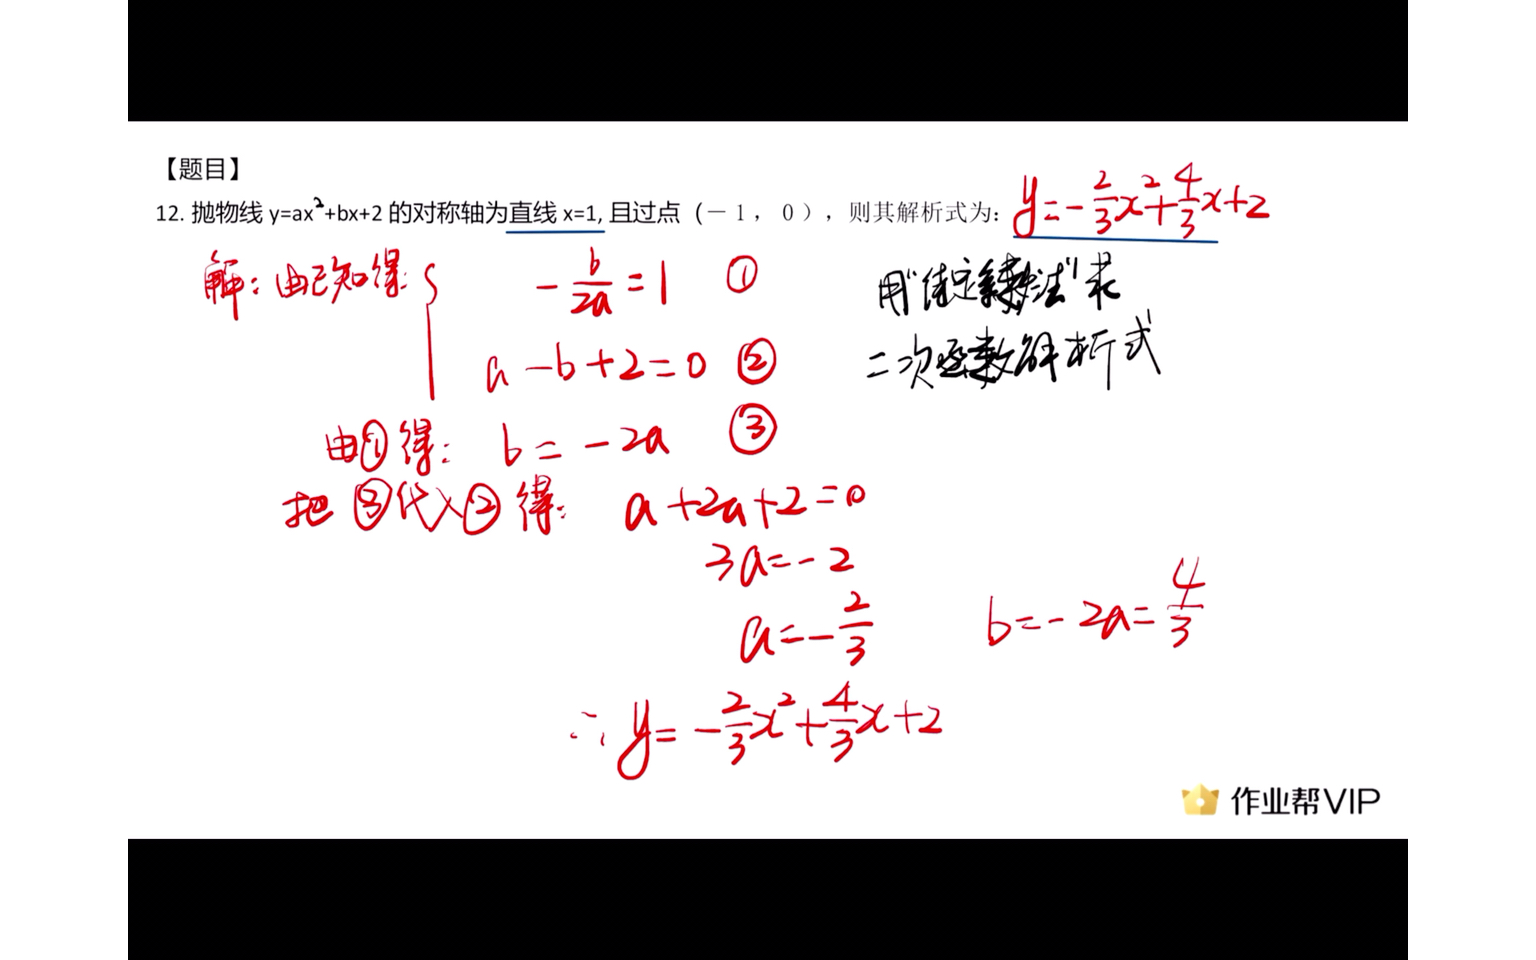 【题目】
12. 抛物线 y=ax²+bx+2 的对称轴为直线 x=1, 且过点（－1，0），则其解析式为: y=-2/3x²+4/3x+2
解：由已知得：{ -b/2a=1 ①
用"待定系数法"求
a-b+2=0 ②
二次函数解析式
由①得：b=-2a ③
把③代入②得：a+2a+2=0
3a=-2
a=-2/3 b=-2a=4/3
∴y=-2/3x²+4/3x+2
作业帮VIP